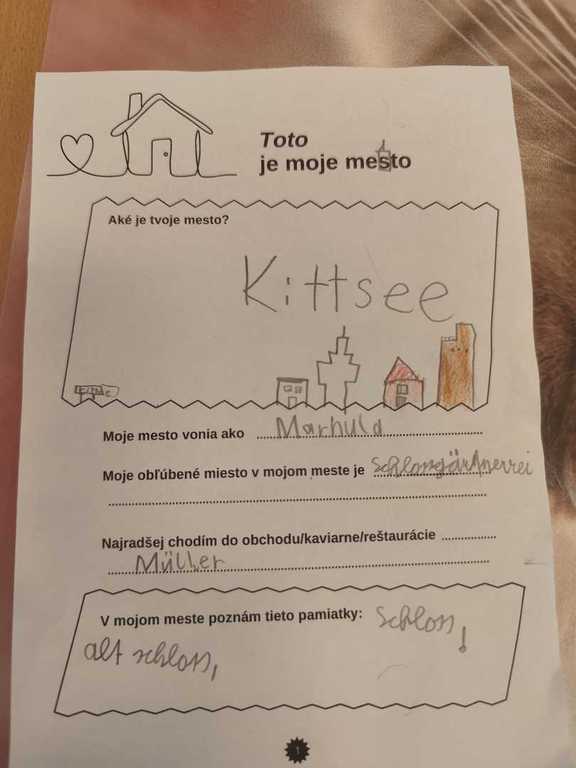 Toto
je moje mesto
Aké je tvoje mesto?
Kittsee
Kittsee
Moje mesto vonia ako Marhuľa
Moje obľúbené miesto v mojom meste je Schlossgärtnerrei
Najradšej chodím do obchodu/kaviarne/reštaurácie
Müller
V mojom meste poznám tieto pamiatky: Schloss,
alt schloss,
1